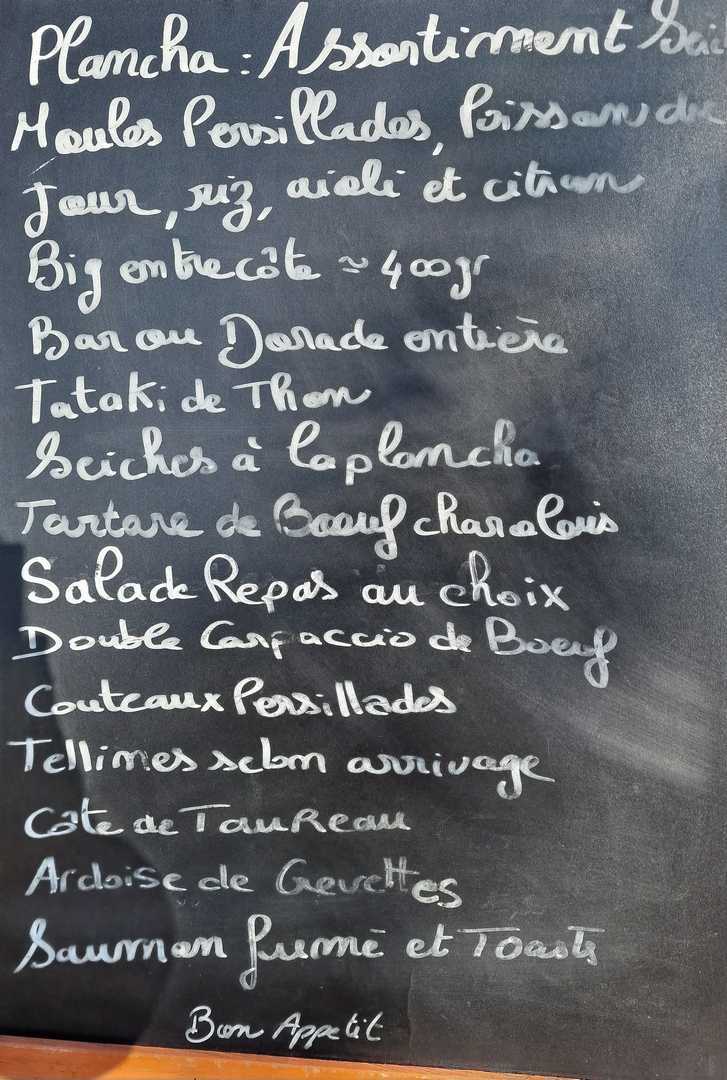 Plancha : Assortiment Seic
Moules Persillades, Poisson du
Jour, riz, aioli et citron
Big entrecôte ≈ 400gr
Bar ou Dorade entière
Tataki de Thon
Seiches à la plancha
Tartare de Boeuf charolais
Salade Repas au choix
Double Carpaccio de Boeuf
Couteaux Persillades
Tellines selon arrivage
Côte de Taureau
Ardoise de Crevettes
Saumon fumé et Toasts
Bon Appetit